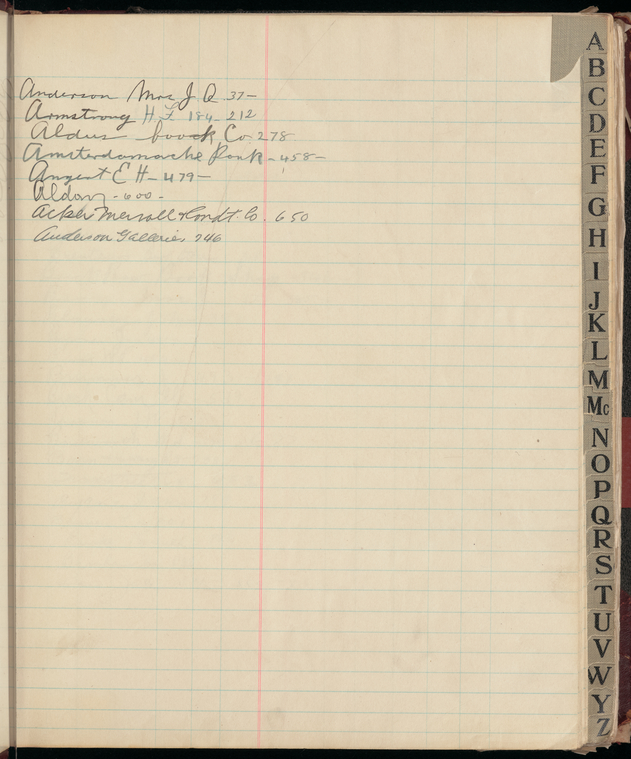 Anderson Mrs J Q. 37-
Armstrong H F 184- 212
Aldus boock Co 278
Amsterdamsche Bank - 458-
Angent E H - 479-
- 600 -
Acker Merrall & Condt Co. 650
Anderson Galleries 746
A
B
C
D
E
F
G
H
I
J
K
L
M
Mc
N
O
P
Q
R
S
T
U
V
W
Y
Z